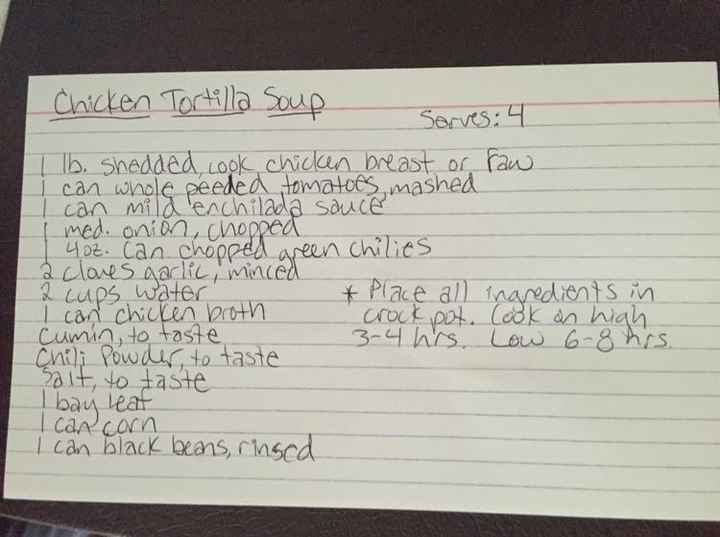 Chicken Tortilla Soup
Serves: 4
1 lb. shedded, cook chicken breast or raw
1 can whole peeded tomatoes, mashed
1 can mild enchilada sauce
1 med. onion, chopped
1 4oz. can chopped green chilies
2 cloves garlic, minced
2 cups water
1 can chicken broth
Cumin, to taste
Chili Powder, to taste
Salt, to taste
1 bay leaf
1 can corn
1 can black beans, rinsed
* Place all ingredients in
crock pot. Cook on high
3-4 hrs. Low 6-8 hrs.